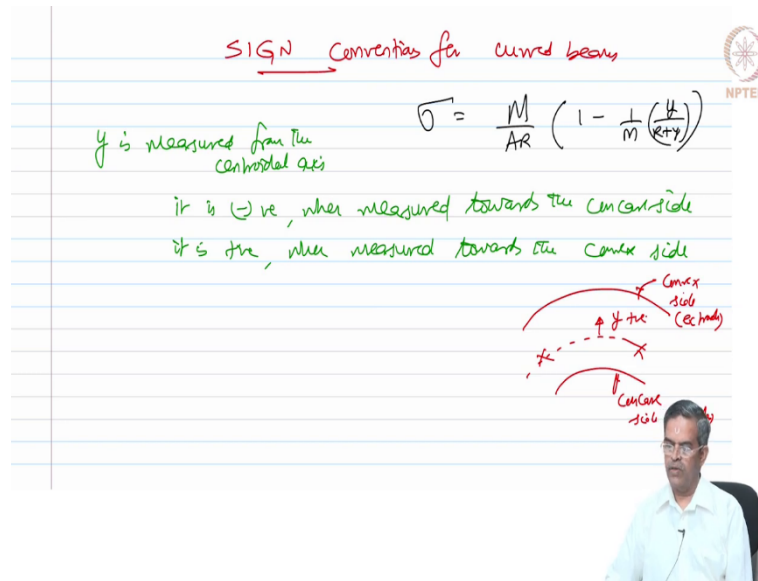 SIGN Conventions for curved beams
NPTEL
σ = M/AR (1 - 1/m (y/R+y))
y is measured from the
centroidal axis
it is (-) ve, when measured towards the concave side
it is +ve, when measured towards the convex side
Convex
side
y +ve
Concave
side